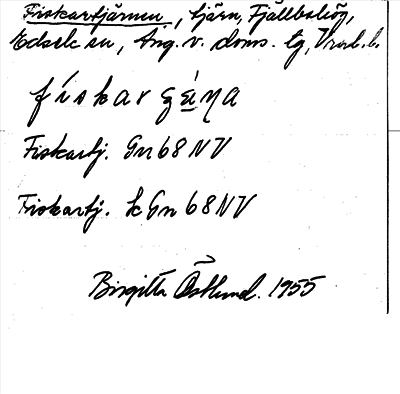 Fiskartjärnen, tjärn, Fjällbohög,
Edsele sn, Ång. v. doms. tg, Vrnl. l.
fiskar
Fiskartj. Gn 68 NV
Fiskartj. k Gn 68 NV
Birgitta Östlund. 1955